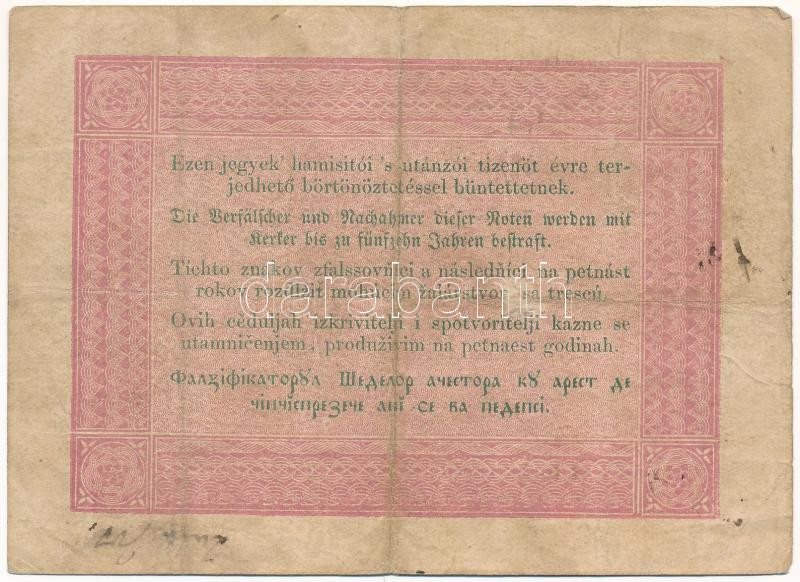 Ezen jegyek' hamisítói 's utánzói tizenöt évre ter-
jedhető börtönöztetéssel büntettetnek.
Die Verfälscher und Nachahmer dieser Noten werden mit
Kerker bis zu fünfzehn Jahren bestraft.
Tíchto znákov zfalssovňíci a následňíci na petnást
rokov rozúlžit mohúcim žalárstvom sa trescú.
Ovih céduljah izkrivitelji i spotvoritelji kazne se
utamničenjem, produživim na petnaest godinah.
Фалзіфікаторꙋл Шеделор ачестора кꙋ арест де
чінчіспрезече ані се ва педепсі.
darabanth